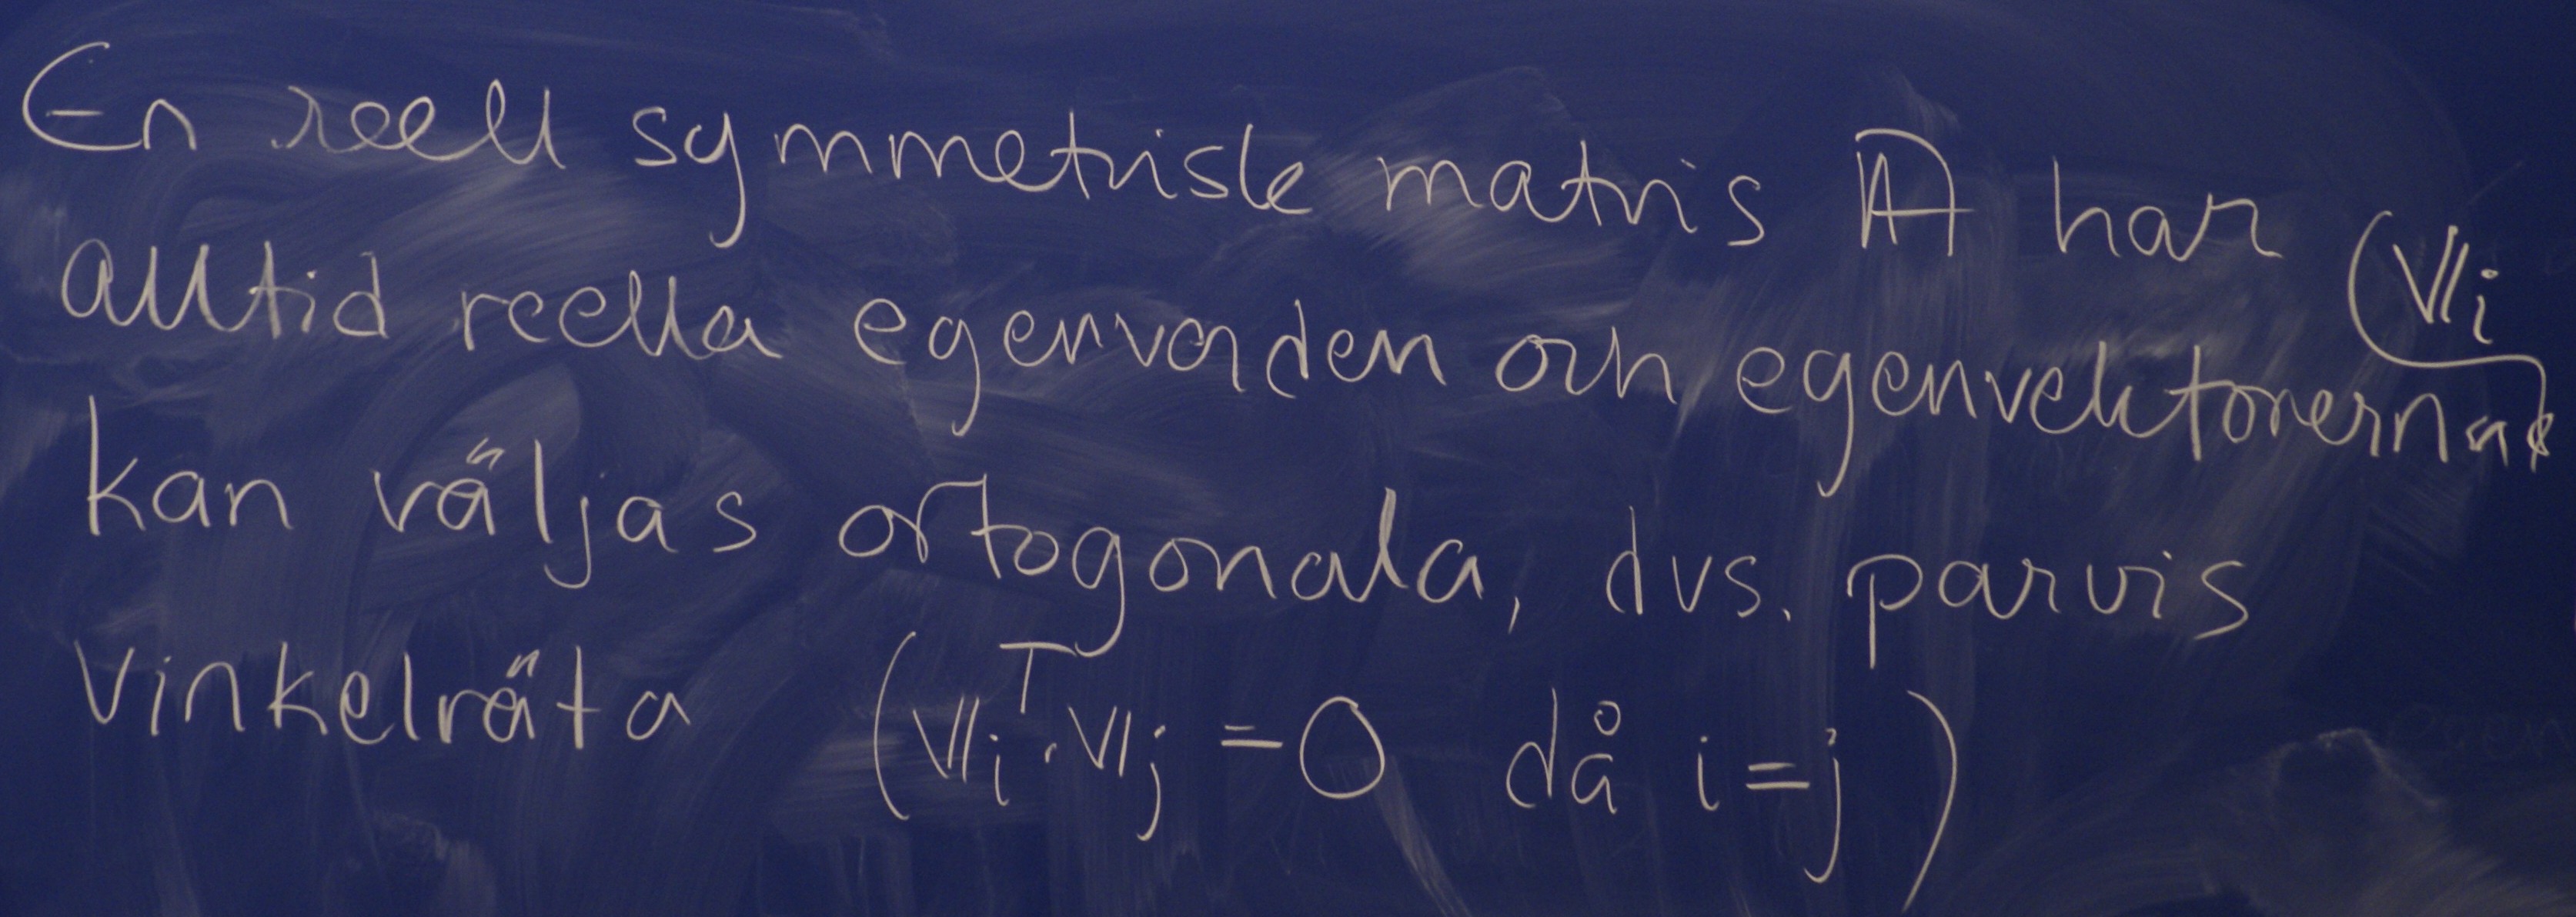 En reell symmetrisk matris 𝔸 har (𝕍i
alltid reella egenvärden och egenvektorerna
kan väljas ortogonala, dvs. parvis
vinkelräta (𝕍iᵀ·𝕍j = 0 då i=j)